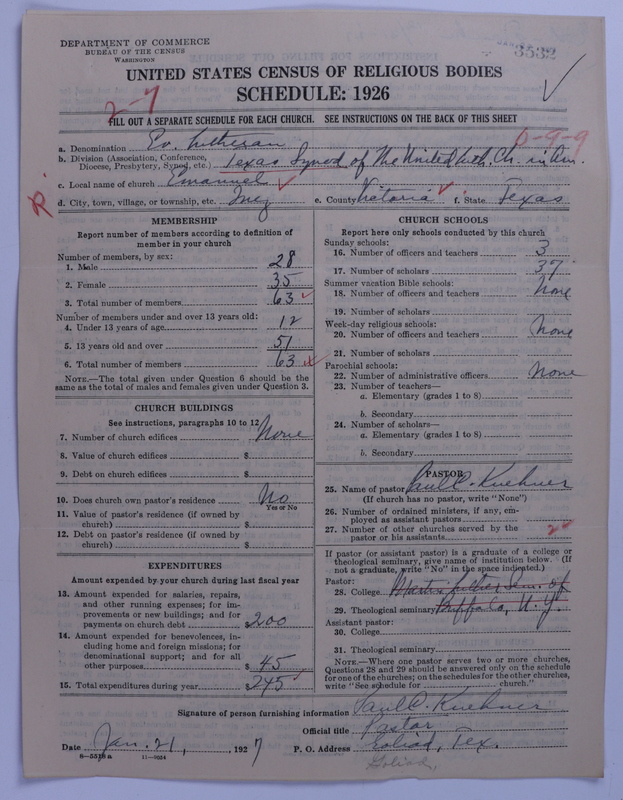 DEPARTMENT OF COMMERCE
BUREAU OF THE CENSUS
WASHINGTON
3532
UNITED STATES CENSUS OF RELIGIOUS BODIES
SCHEDULE: 1926
2-7
FILL OUT A SEPARATE SCHEDULE FOR EACH CHURCH. SEE INSTRUCTIONS ON THE BACK OF THIS SHEET
0-9-9
a. Denomination Ev. Lutheran
b. Division (Association, Conference, Diocese, Presbytery, Synod, etc.) Texas Synod of The United Luth. Ch. in Am.
c. Local name of church Emanuel
R.
d. City, town, village, or township, etc. Inez e. County Victoria f. State Texas
MEMBERSHIP
Report number of members according to definition of
member in your church
Number of members, by sex:
1. Male 28
2. Female 35
3. Total number of members 63
Number of members under and over 13 years old:
4. Under 13 years of age 12
5. 13 years old and over 51
6. Total number of members 63
NOTE.—The total given under Question 6 should be the
same as the total of males and females given under Question 3.
CHURCH BUILDINGS
See instructions, paragraphs 10 to 12
7. Number of church edifices None
8. Value of church edifices $
9. Debt on church edifices $
10. Does church own pastor's residence No
Yes or No
11. Value of pastor's residence (if owned by
church) $
12. Debt on pastor's residence (if owned by
church) $
EXPENDITURES
Amount expended by your church during last fiscal year
13. Amount expended for salaries, repairs,
and other running expenses; for im-
provements or new buildings; and for
payments on church debt $200
14. Amount expended for benevolences, in-
cluding home and foreign missions; for
denominational support; and for all
other purposes $45
15. Total expenditures during year $245
CHURCH SCHOOLS
Report here only schools conducted by this church
Sunday schools:
16. Number of officers and teachers 3
17. Number of scholars 37
Summer vacation Bible schools:
18. Number of officers and teachers None
19. Number of scholars
Week-day religious schools:
20. Number of officers and teachers None
21. Number of scholars
Parochial schools:
22. Number of administrative officers None
23. Number of teachers—
a. Elementary (grades 1 to 8)
b. Secondary
24. Number of scholars—
a. Elementary (grades 1 to 8)
b. Secondary
PASTOR
25. Name of pastor Paul C. Kuehner
(If church has no pastor, write "None")
26. Number of ordained ministers, if any, em-
ployed as assistant pastors
27. Number of other churches served by the
pastor or his assistants 2
If pastor (or assistant pastor) is a graduate of a college or
theological seminary, give name of institution below. (If
not a graduate, write "No" in the space indicated.)
Pastor:
28. College Martin Luther Sem. of
29. Theological seminary Buffalo, N.Y.
Assistant pastor:
30. College
31. Theological seminary
NOTE.—Where one pastor serves two or more churches,
Questions 28 and 29 should be answered only on the schedule
for one of the churches; on the schedules for the other churches,
write "See schedule for church."
Signature of person furnishing information Paul C. Kuehner
Official title Pastor
Date Jan. 21, 1927 P. O. Address Goliad, Tex.
8—551Ba 11—9034
Goliad,